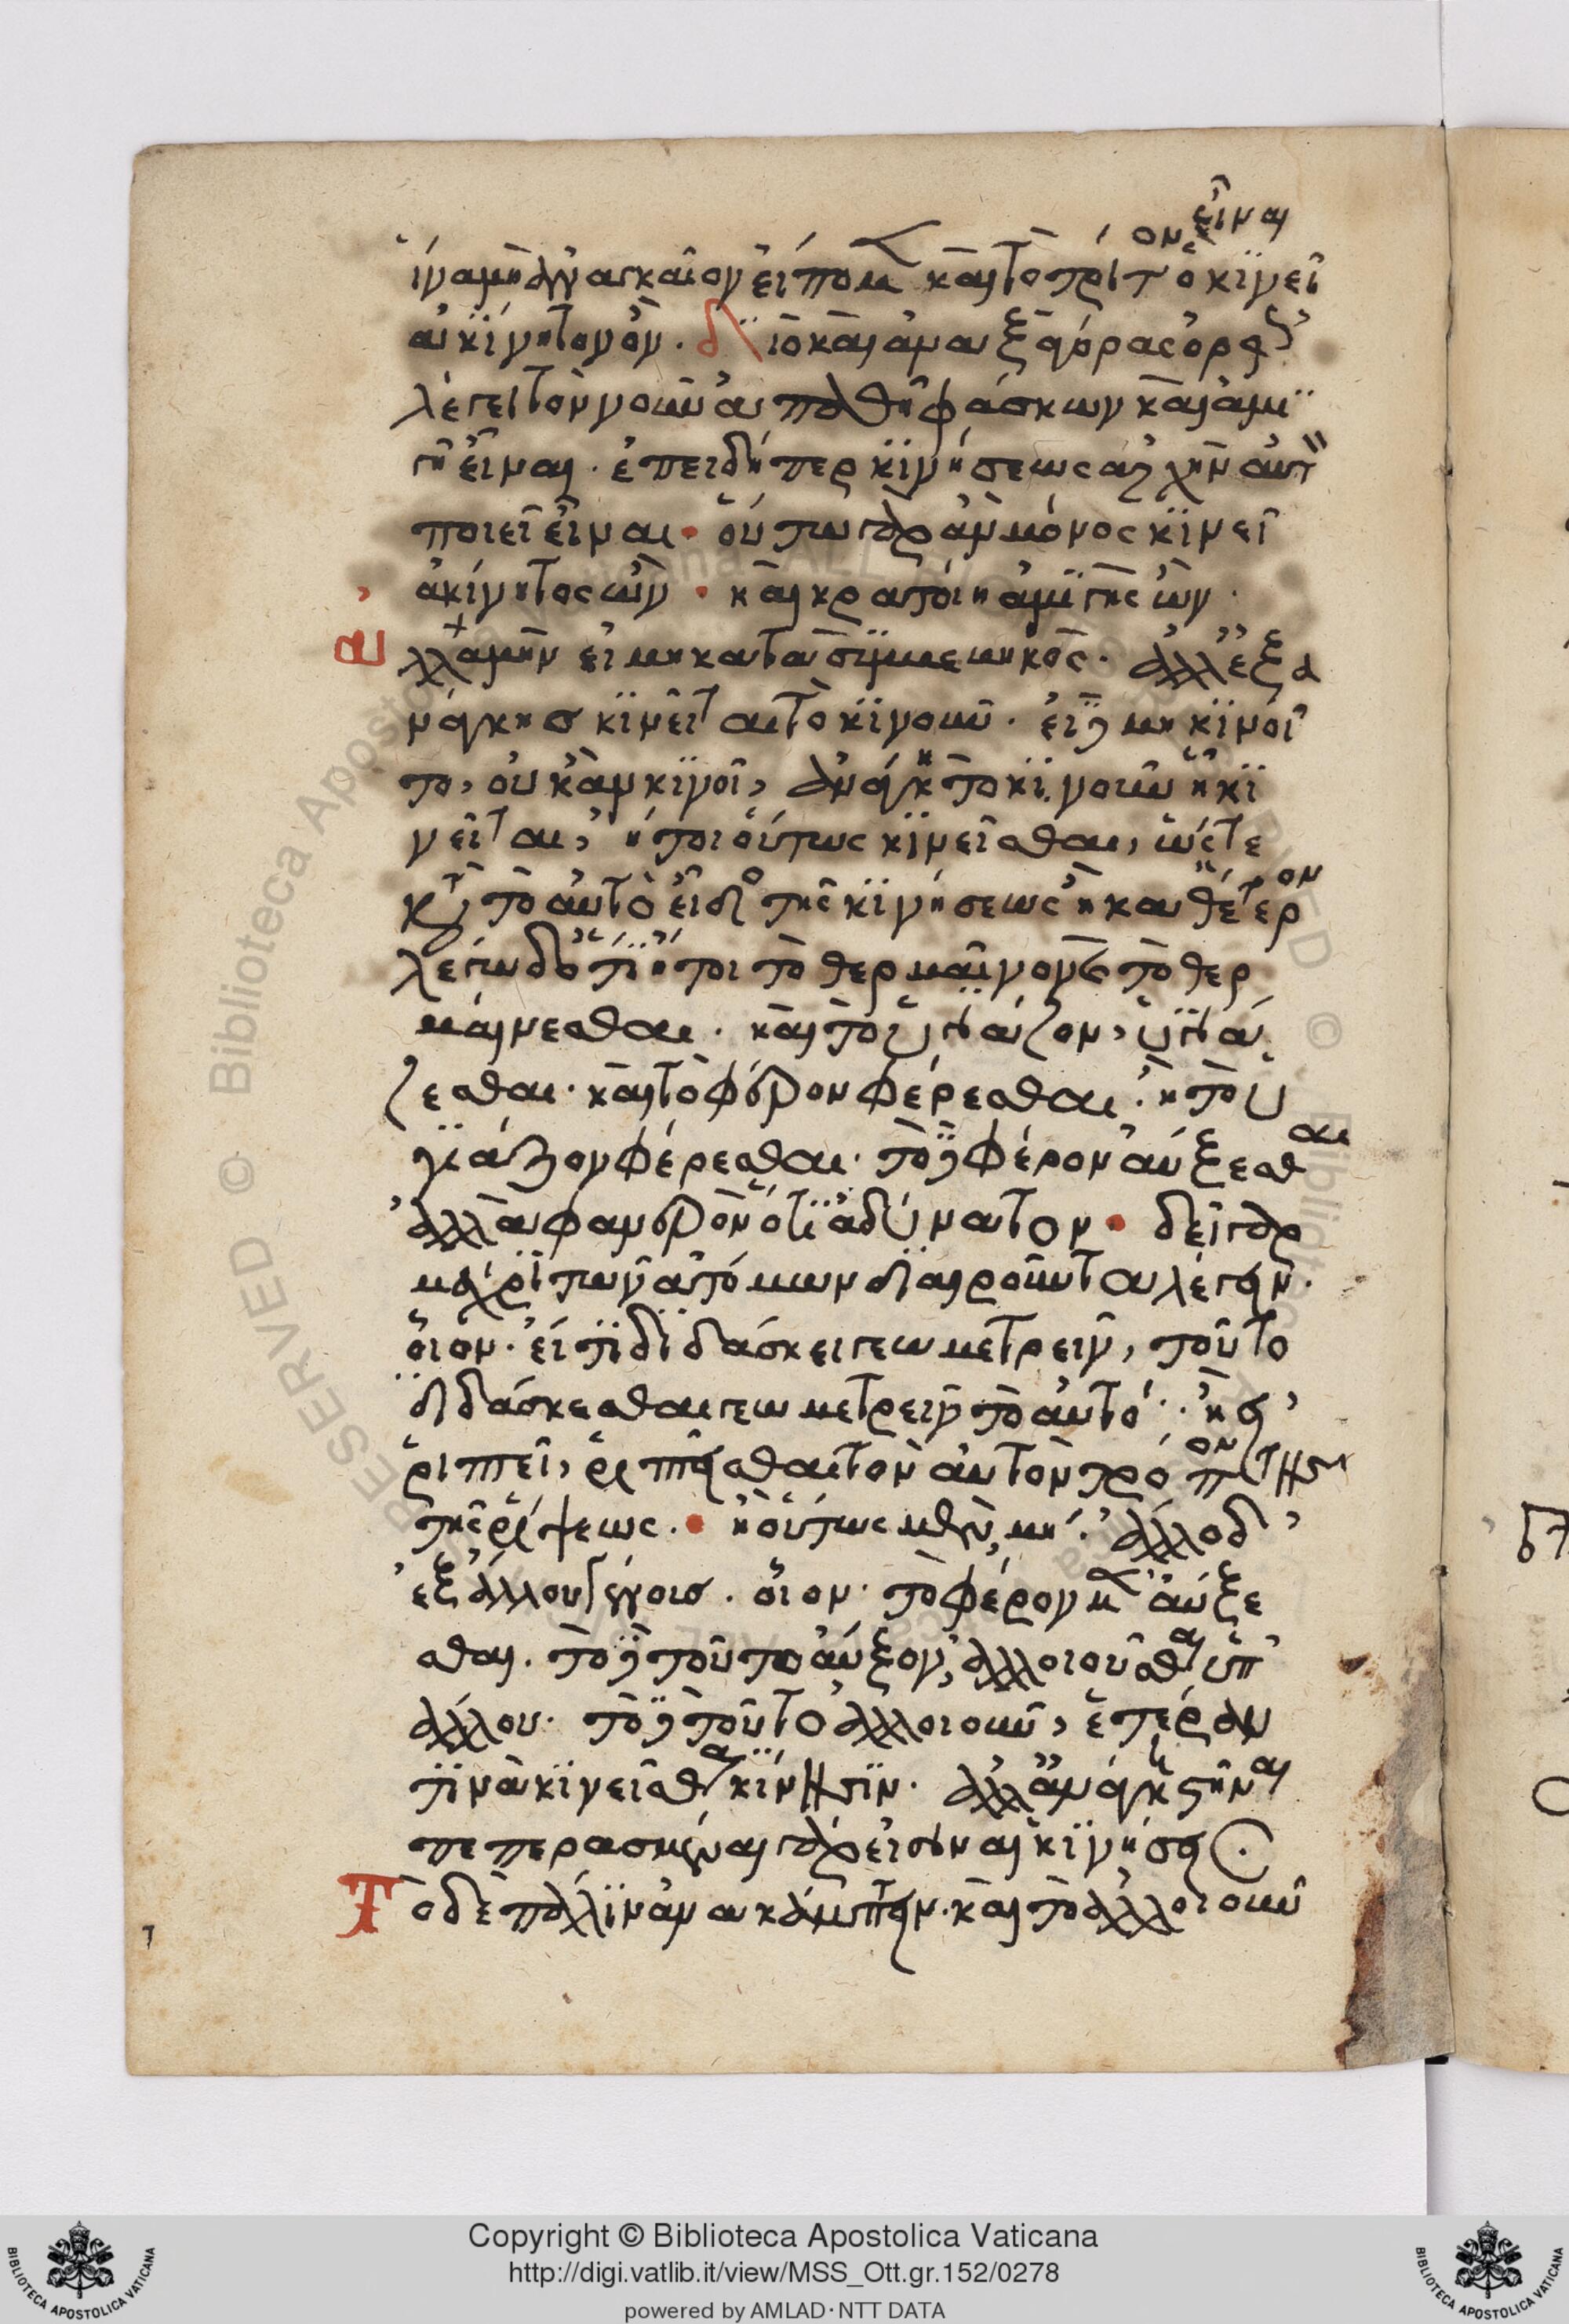 εἶναι
ἵνα μὴ ἀναγκαῖον εἴπομεν καὶ τὸ τρίτον ὃ κινεῖ
ἀκίνητον ὄν. διὸ καὶ ἀναξαγόρας ὀρθ
λέγει τὸν νοῦν ἀπαθῆ φάσκων καὶ ἀμι
γῆ εἶναι. ἐπειδήπερ κινήσεως ἀρχὴν αὐτ
ποιεῖ εἶναι. οὕτω γὰρ ἂν μόνος κινεῖ
ἀκίνητος ὤν. καὶ κρατοίη ἀμιγὴς ὤν.
ἀλλὰ μὴν εἰ μὴ κατὰ συμβεβηκὸς. ἀλλ' ἐξ ἀ
νάγκησ κινεῖται τὸ κινοῦν. εἰ δὲ μὴ κινοῖ
το, οὐκ ἂν κινοῖ, ἀνάγκη τὸ κινοῦν ἢ κι
νεῖται, ἤτοι οὕτως κινεῖσθαι, ὥστε
κατὰ τὸ αὐτὸ εἶδος τῆς κινήσεως ἢ καθ' ἕτερον
λέγω δ' ὅτι ἤτοι τὸ θερμαῖνον καὶ τὸ θερ
μαίνεσθαι. καὶ τὸ ὑγιάζον, ὑγιά
ζεσθαι. καὶ τὸ φέρον φέρεσθαι. ἢ τὸ ὑ
γιάζον φέρεσθαι. τὸ δὲ φέρον αὔξεσθαι
ἀλλὰ φανερὸν ὅτι ἀδύνατον. δεῖ γὰρ
μέχρι τῶν ἀτόμων διαιροῦντα λέγειν.
οἷον. εἴ τι διδάσκει γεωμετρεῖν, τοῦτο
διδάσκεσθαι γεωμετρεῖν τὸ αὐτό. ἢ εἰ
ῥιπτεῖ, ῥιπτεῖσθαι τὸν αὐτὸν τρόπον τησ
τῆς ῥίψεως. ἢ οὕτως μὲν μή. ἄλλο δ'
ἐξ ἄλλου γένουσ. οἷον. τὸ φέρον μὲν αὔξε
σθαι. τὸ δὲ τοῦτο αὖξον, ἀλλοιοῦσθαι ὑπ'
ἄλλου. τὸ δὲ τοῦτο ἀλλοιοῦν, ἑτέραν
τινὰ κινεῖσθαι κίνησιν. ἀλλ' ἀνάγκη στῆναι
πεπερασμέναι γὰρ εἰσὶν αἱ κινήσεις.
Τὸ δὲ πάλιν ἀνακάμπτειν. καὶ τὸ ἀλλοιοῦν
Copyright © Biblioteca Apostolica Vaticana
http://digi.vatlib.it/view/MSS_Ott.gr.152/0278
powered by AMLAD·NTT DATA